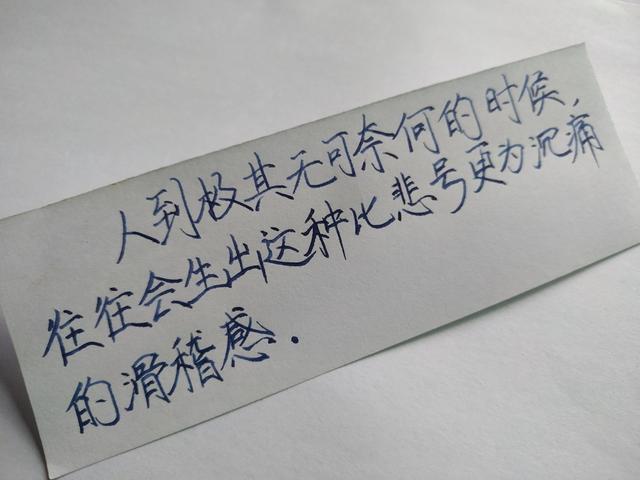 人到极其无可奈何的时候,
往往会生出这种比悲号更为沉痛
的滑稽感.